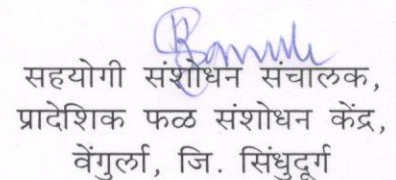 सहयोगी संशोधन संचालक,
प्रादेशिक फळ संशोधन केंद्र,
वेंगुर्ला, जि. सिंधुदूर्ग